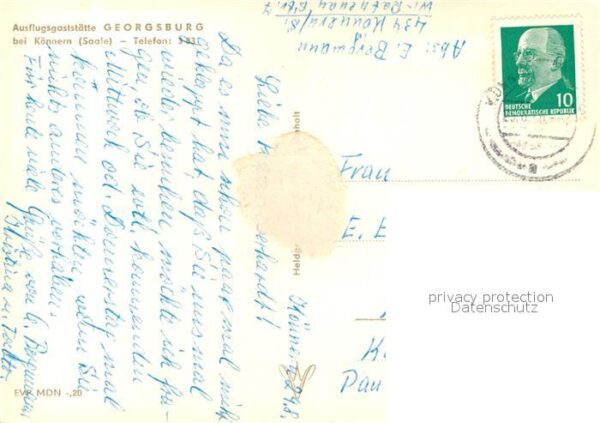 Ausflugsgaststätte GEORGSBURG
bei Könnern (Saale) – Telefon: 383
Abs: E. Bergmann
434 Könnern/S.
W. Rathenau Str. 7
DEUTSCHE
DEMOKRATISCHE REPUBLIK
10
Könnern, 29.8.
Liebe
Da es nun schon paarmal nicht
geklappt hat, daß Sie uns mal
wieder besuchen, möchte ich
ob Sie evtl. kommenden
Mittwoch od. Donnerstag mal
kommen möchten, wenn Sie
nichts anderes vorhaben.
Für heute viele Grüße von E. Bergmann
Christina u. Tochter
Frau
E. E
K
Pau
EVP MDN -,20
privacy protection
Datenschutz